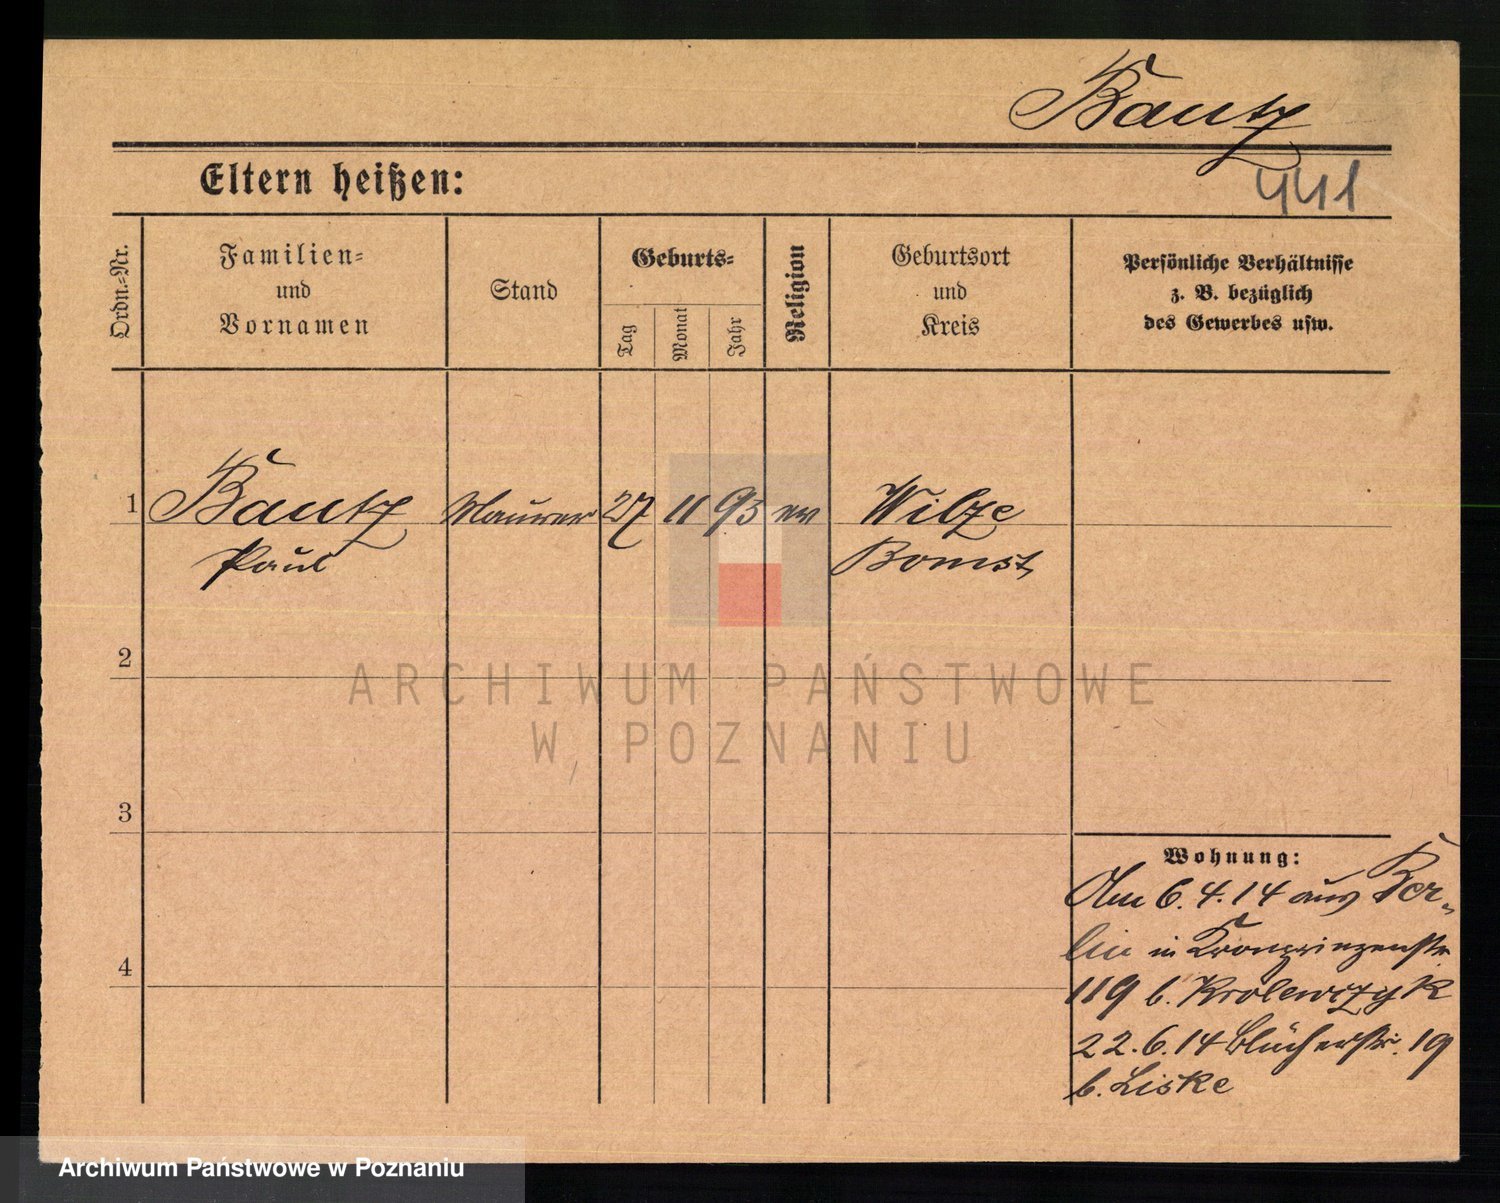 Bautz
441
Eltern heißen:
Ordn.-Nr.
Familien-
und
Vornamen
Stand
Geburts-
Tag
Monat
Jahr
Religion
Geburtsort
und
Kreis
Persönliche Verhältnisse
z. B. bezüglich
des Gewerbes usw.
1 Bautz Maurer 27 11 93 ev Wilze
Paul Bomst
2
ARCHIWUM PAŃSTWOWE
W POZNANIU
3
Wohnung:
Am 6.4.14 aus Ber-
lin in Kronprinzenstr.
4
119 b. Krolewczyk
22.6.14 Blücherstr. 19
b. Liske
Archiwum Państwowe w Poznaniu